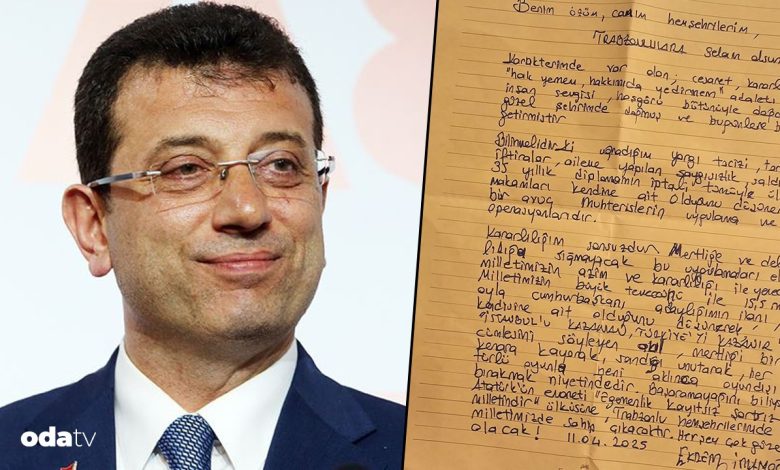 Benim özüm, canım hemşehrilerim,
TRABZONLULARA selam olsun
Karakterimde var olan; cesaret,
"hak yemem, hakkımıda yedirmem"
insan sevgisi, hoşgörü bütünüyle
güzel şehrimde doğmuş ve bugünlere
getirmiştir
Bilinmelidirki uğradığım yargı tacizi,
iftiralar, aileme yapılan saygısızlık,
35 yıllık diplomamın iptali, tümüyle
makamları kendine ait olduğunu
bir avuç muhterislerin uygulama ve
operasyonlarıdır.
Kararlılığım sonsuzdur Mertliğe ve
sığmayacak bu uygulamaları
milletimizin azim ve kararlılığı ile
Milletimizin büyük teveccühü ile 15,5
oyla cumhurbaşkanı adaylığımın ilanı
kendine ait olduğunu düşünerek,
"İSTANBUL'U KAZANAN, TÜRKİYE'Yİ KAZANIR
cümlesini söyleyen akıl, mertliği bir
kenara koyarak, sandığı unutarak, her
türlü oyunla beni aklınca oyundışı
bırakmak niyetindedir. Başaramayacağını
Atatürk'ün emaneti "Egemenlik kayıtsız şartsız
milletindir" ülküsüne Trabzonlu hemşehrilerimde
milletimizde sahip çıkacaktır. Herşey çok
olacak! 11.04.2025
EKREM
odatv